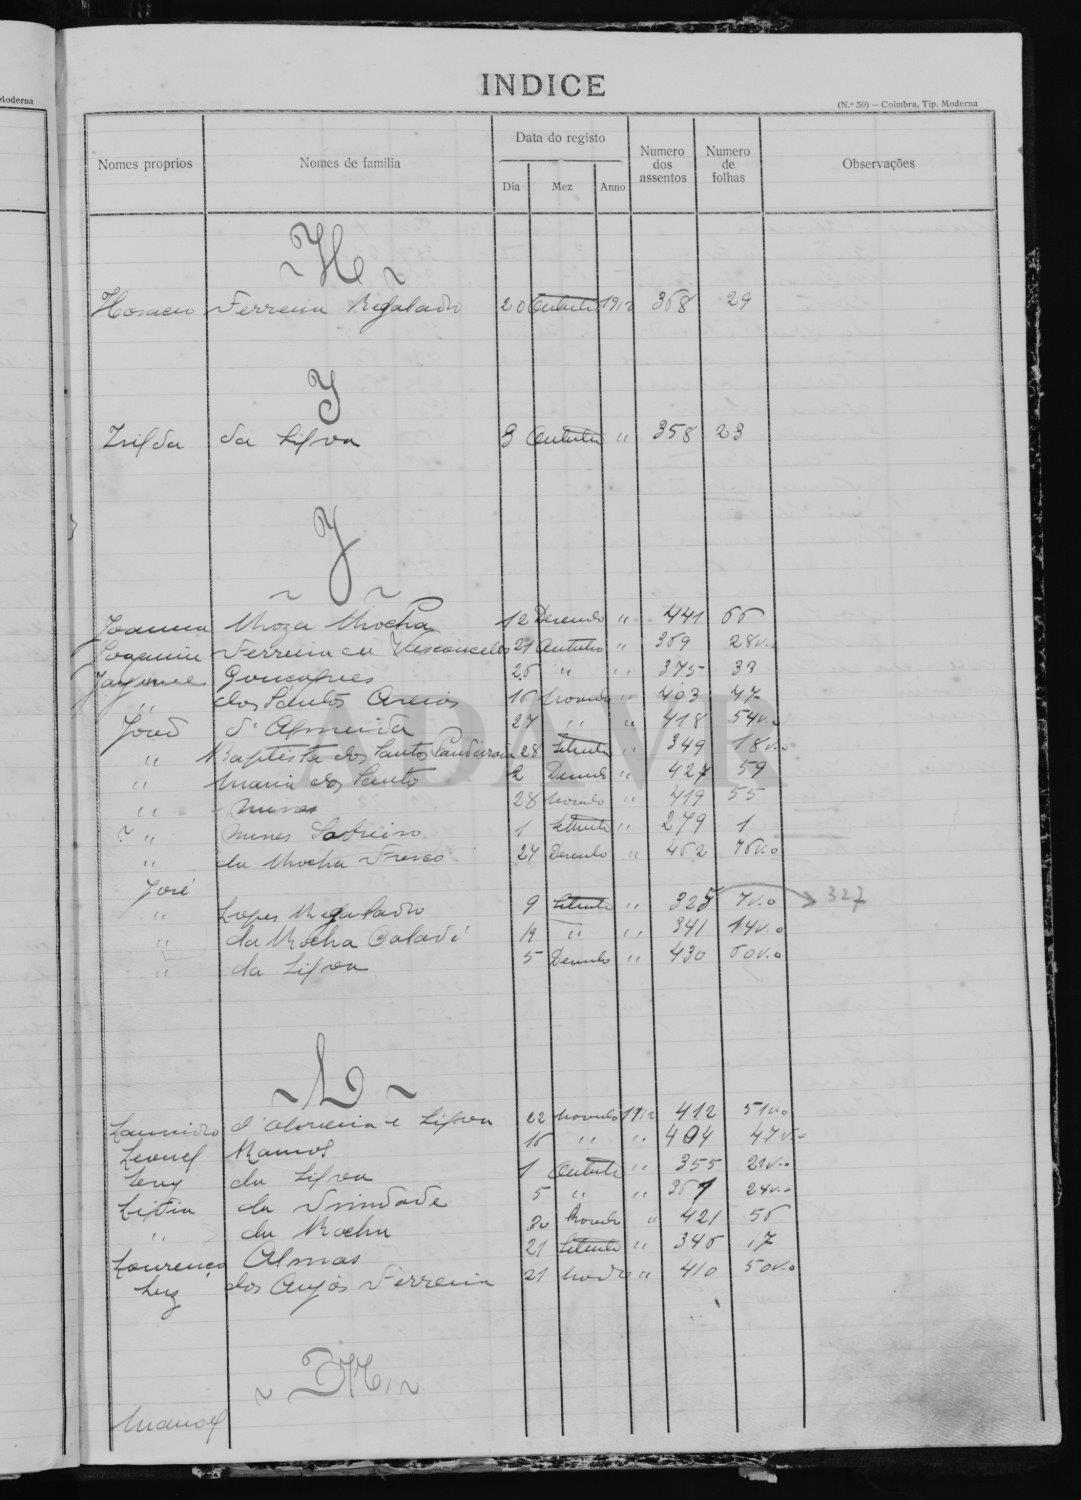 Moderna
INDICE
(N.º 50) — Coimbra, Tip. Moderna
Nomes proprios Nomes de família Data do registo Numero dos assentos Numero de folhas Observações
Dia Mez Anno
H
Ferreira Regalado 20 Outubro 1912 368 29
I
Zilda da Silva 3 Outubro " 358 23
J
Joanna Roza Rocha 12 Dezembro " 441 66
Joaquim Ferreira Vasconcelos 21 Outubro " 369 28v.o
Jayme Gonçalves 26 " " 375 33
" dos Santos 16 Novembro " 403 47
João d'Almeida 27 " " 418 54v.o
" Baptista dos Santos 28 Setembro " 349 18v.o
" Maria dos Santos 2 Dezembro " 427 59
" Nunes 28 Novembro " 419 55
" Nunes Sobreiro 1 Setembro " 279 1
" da Rocha Fresco 27 Dezembro " 462 76v.o
José
" Lopes Regalado 9 Setembro " 325 7v.o 327
" da Rocha 19 " " 341 14v.o
" da Silva 5 Dezembro " 430 60v.o
L
d'Oliveira e Silva 22 Novembro 1912 412 51v.o
Leonel Ramos 16 " " 404 47v.o
Leny da Silva 1 Outubro " 355 21v.o
Lidia da Trindade 5 " " 24v.o
" da Rocha 30 Novembro " 421 56
Lourenço Almas 21 Setembro " 346 17
Luz dos Anjos Ferreira 21 Novembro " 410 50v.o
M
Manoel
ADAVR